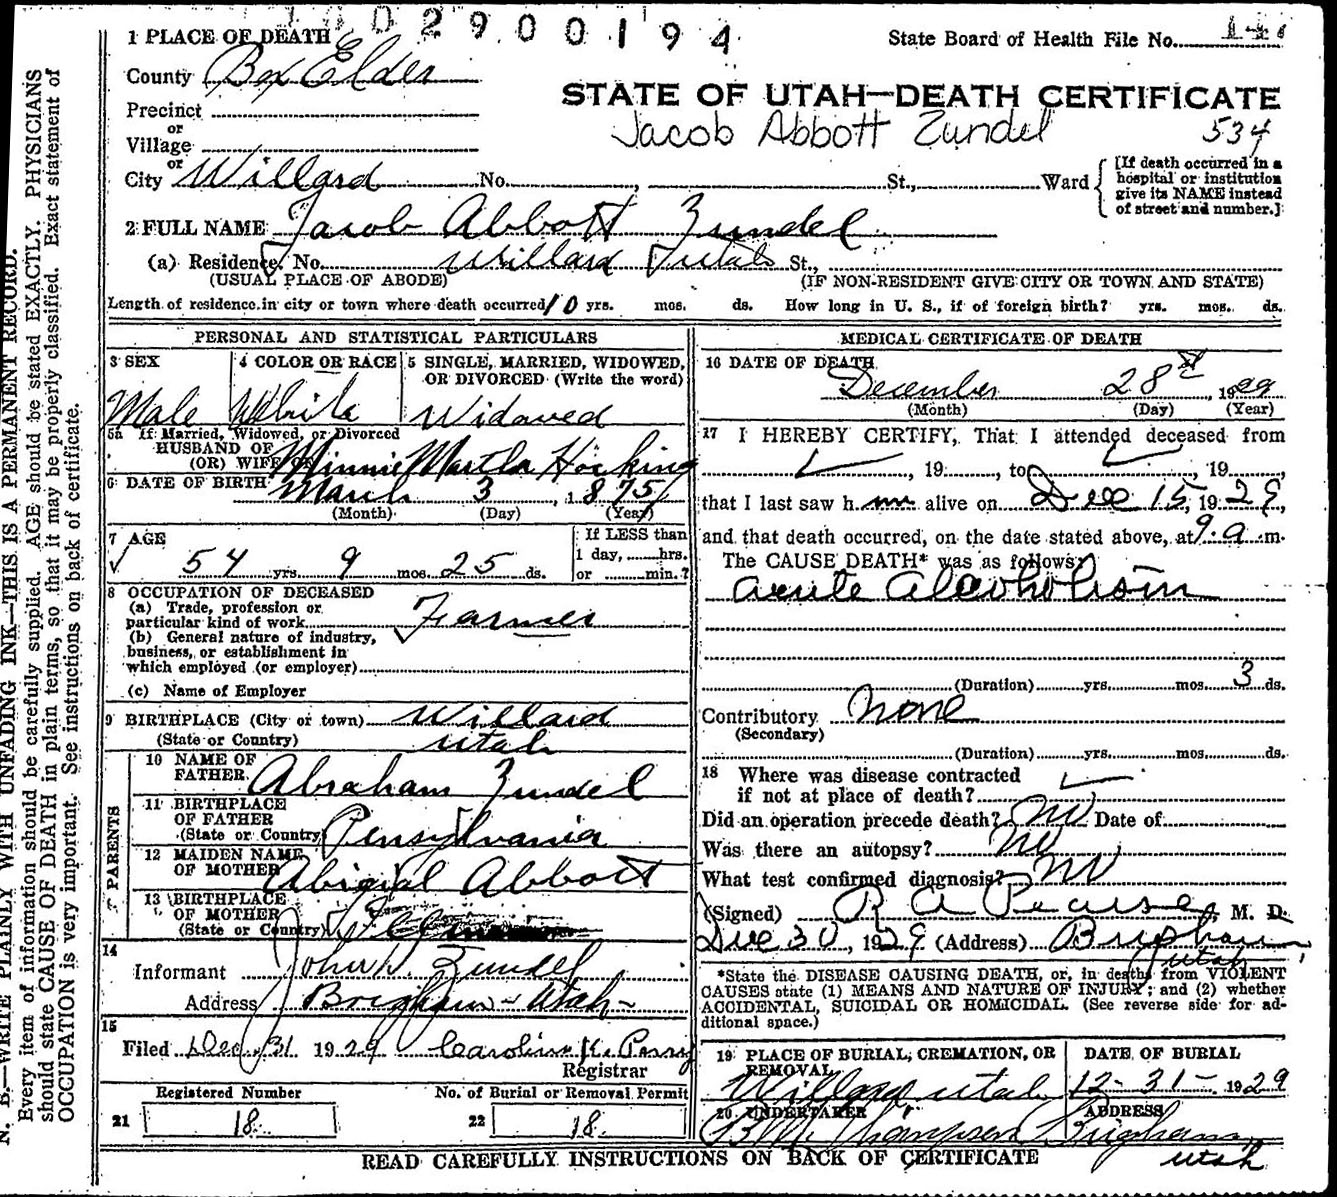 1002900194
1 PLACE OF DEATH
State Board of Health File No.
County Box Elder
STATE OF UTAH—DEATH CERTIFICATE
Precinct
Jacob Abbott Zundel 534
or
Village
or
City Willard No. , St., Ward
[If death occurred in a hospital or institution give its NAME instead of street and number.]
2 FULL NAME Jacob Abbott Zundel
(a) Residence, No. Willard Utah St.,
(USUAL PLACE OF ABODE) (IF NON-RESIDENT GIVE CITY OR TOWN AND STATE)
Length of residence in city or town where death occurred 10 yrs. mos. ds. How long in U. S., if of foreign birth? yrs. mos. ds.
PERSONAL AND STATISTICAL PARTICULARS
3 SEX
Male
4 COLOR OR RACE
White
5 SINGLE, MARRIED, WIDOWED,
OR DIVORCED (Write the word)
Widowed
5a If Married, Widowed, or Divorced
HUSBAND OF
(OR) WIFE OF Minnie Martha Hocking
6 DATE OF BIRTH March 3, 1875
(Month) (Day) (Year)
7 AGE
54 yrs 9 mos. 25 ds.
If LESS than
1 day, hrs.
or min.?
8 OCCUPATION OF DECEASED
(a) Trade, profession or
particular kind of work Farmer
(b) General nature of industry,
business, or establishment in
which employed (or employer)
(c) Name of Employer
9 BIRTHPLACE (City or town) Willard
(State or Country) Utah
PARENTS
10 NAME OF
FATHER Abraham Zundel
11 BIRTHPLACE
OF FATHER
(State or Country) Pensylvania
12 MAIDEN NAME
OF MOTHER Abigial Abbott
13 BIRTHPLACE
OF MOTHER
(State or Country)
14
Informant John W. Zundel
Address Brigham - Utah -
15
Filed Dec. 31 1929 Caroline K. Perry
Registrar
Registered Number No. of Burial or Removal Permit
21 18 22 18
MEDICAL CERTIFICATE OF DEATH
16 DATE OF DEATH
December 28 1929
(Month) (Day) (Year)
17 I HEREBY CERTIFY, That I attended deceased from
, 19 , to , 19 ,
that I last saw h im alive on Dec 15, 1929,
and that death occurred, on the date stated above, at 9. a m.
The CAUSE DEATH* was as follows:
acute Alcoholism
(Duration) yrs. mos. 3 ds.
Contributory None
(Secondary)
(Duration) yrs. mos. ds.
18 Where was disease contracted
if not at place of death?
Did an operation precede death? no Date of
Was there an autopsy? no
What test confirmed diagnosis? no
(Signed) R A Pearse, M. D.
Dec 30, 1929 (Address) Brigham
Utah
*State the DISEASE CAUSING DEATH, or, in deaths from VIOLENT
CAUSES state (1) MEANS AND NATURE OF INJURY; and (2) whether
ACCIDENTAL, SUICIDAL OR HOMICIDAL. (See reverse side for ad-
ditional space.)
19 PLACE OF BURIAL, CREMATION, OR
REMOVAL
Willard Utah
DATE OF BURIAL
12-31- 1929
20 UNDERTAKER
B. M. Thompson
ADDRESS
Brigham
Utah
READ CAREFULLY INSTRUCTIONS ON BACK OF CERTIFICATE
N. B.—WRITE PLAINLY WITH UNFADING INK—THIS IS A PERMANENT RECORD.
Every item of information should be carefully supplied. AGE should be stated EXACTLY. PHYSICIANS
should state CAUSE OF DEATH in plain terms, so that it may be properly classified. Exact statement of
OCCUPATION is very important. See instructions on back of certificate.